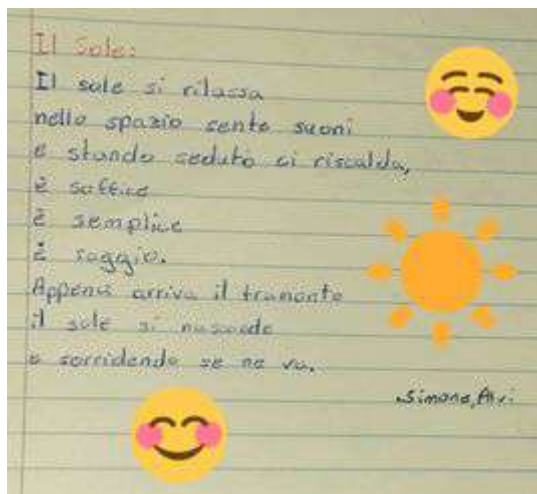 Il Sole:
Il sole si rilassa
nello spazio sente suoni
e stando seduto ci riscalda,
è soffice
è semplice
è saggio.
Appena arriva il tramonto
il sole si nasconde
e sorridendo se ne va.
Simone,